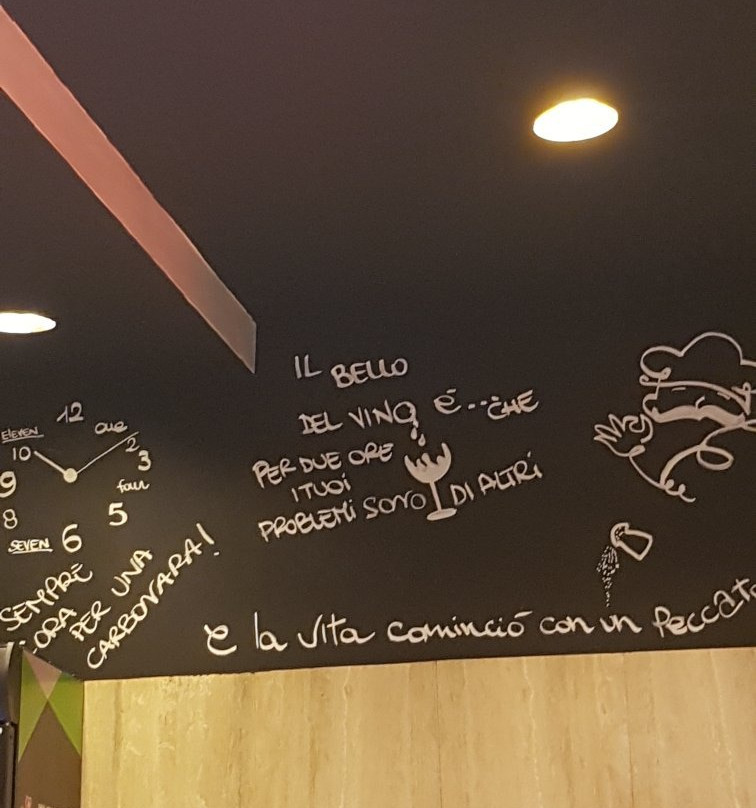 12
ELEVEN
one
10
2
3
9
four
8
5
SEVEN
6
SEMPRE
ORA
PER UNA
CARBONARA!
IL BELLO
DEL VINO È...CHE
PER DUE ORE
I TUOI
PROBLEMI SONO DI ALTRI
e la vita cominciò con un peccato